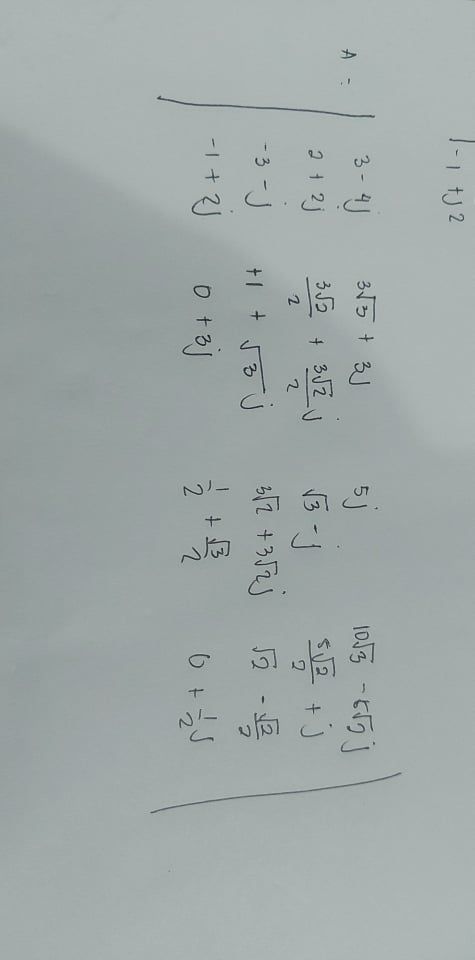 |-1 + j2
A =
3 - 4j 3√3 + 3j 5j 10√3
2 + 2j 3√2/2 + 3√2/2 j √3 - j 5√2/2 + j
-3 - j +1 + √3 j 3√2 + 3√2j √2 - √2/2
-1 + 2j 0 + 3j 1/2 + √3/2 + 1/2 j